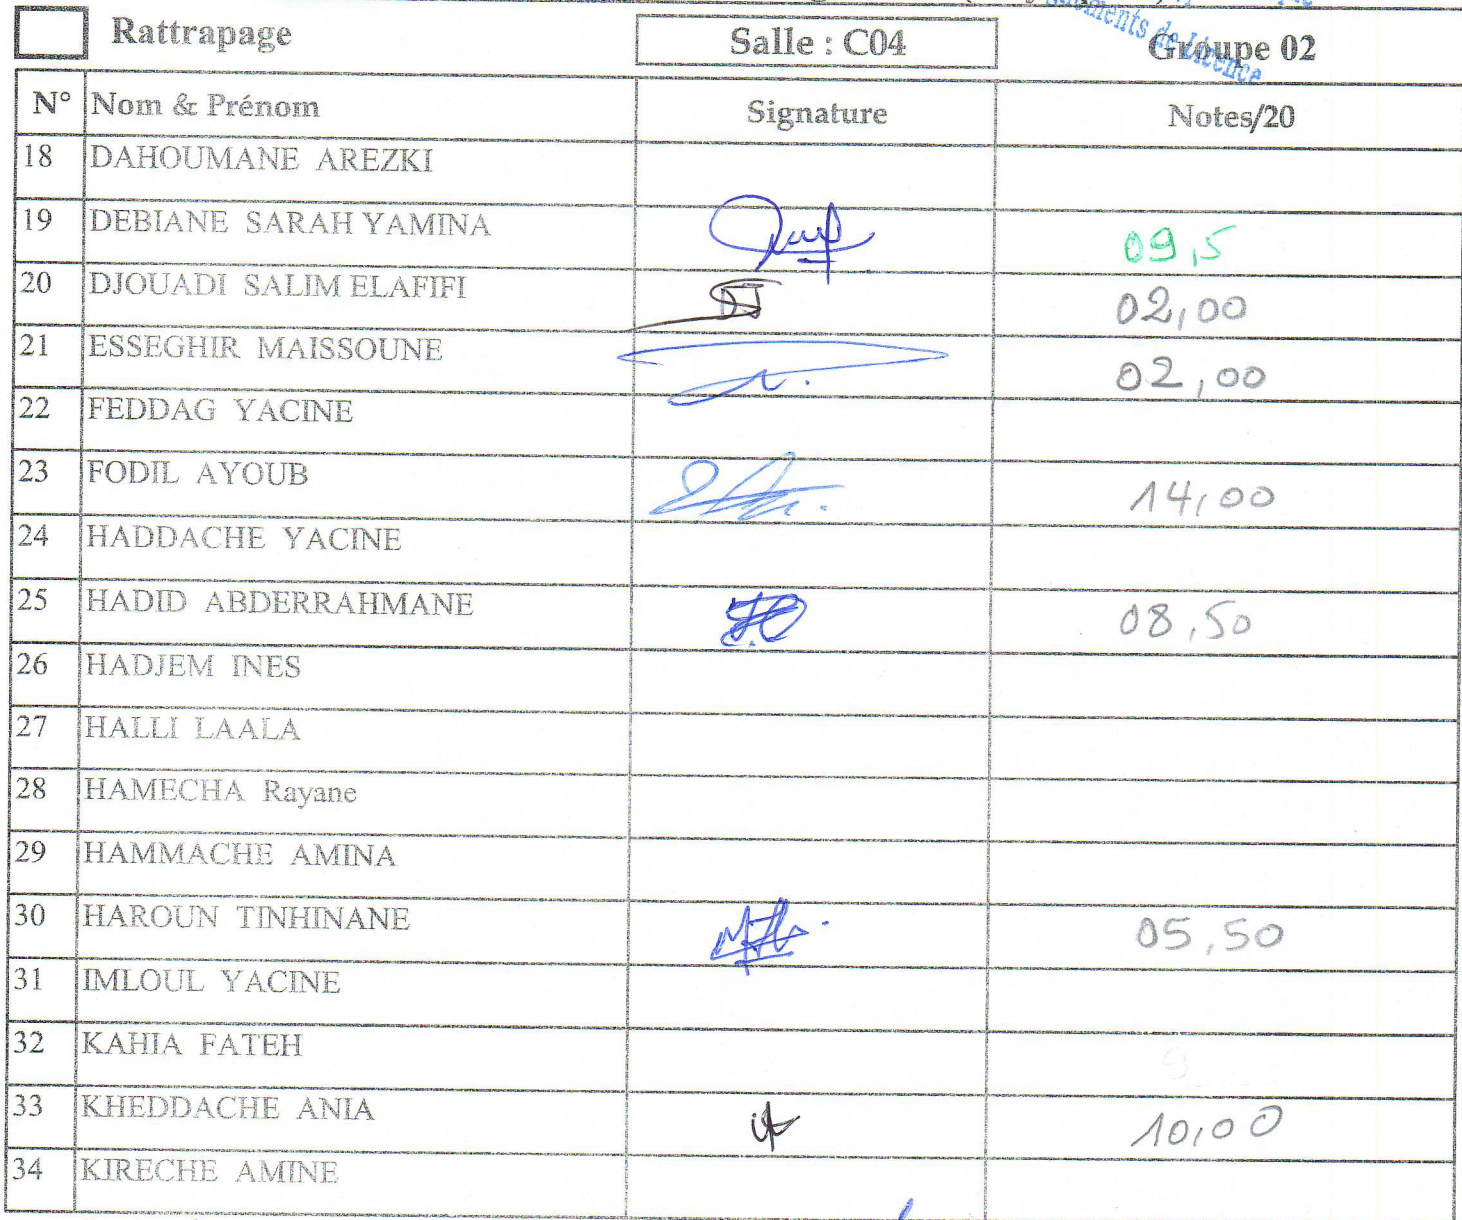 Rattrapage
Salle : C04
Groupe 02
de Licence
N° Nom & Prénom Signature Notes/20
18 DAHOUMANE AREZKI
19 DEBIANE SARAH YAMINA 09,5
20 DJOUADI SALIM ELAFIFI 02,00
21 ESSEGHIR MAISSOUNE 02,00
22 FEDDAG YACINE
23 FODIL AYOUB 14,00
24 HADDACHE YACINE
25 HADID ABDERRAHMANE 08,50
26 HADJEM INES
27 HALLI LAALA
28 HAMECHA Rayane
29 HAMMACHE AMINA
30 HAROUN TINHINANE 05,50
31 IMLOUL YACINE
32 KAHIA FATEH
33 KHEDDACHE ANIA 10,00
34 KIRECHE AMINE